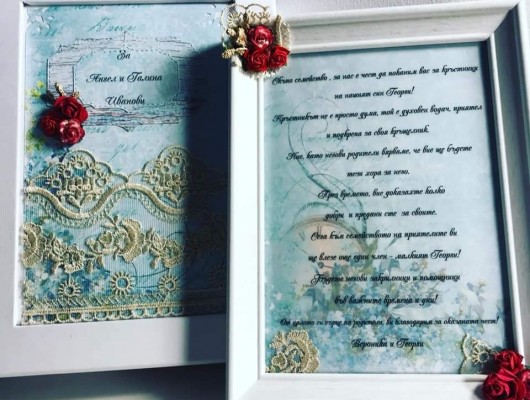 За
Ангел и Галина
Иванови
Скъпо семейство , за нас е чест да поканим вас за кръстници
на нашият син Георги!
Кръстникът не е просто дума, той е духовен водач, приятел
и подкрепа за своя кръщелник.
Ние, като негови родители вярваме, че вие ще бъдете
тези хора за него.
През времето, вие доказахте колко
добри и предани сте за своите.
Сега към семейството на приятелите ви
ще влезе още един член - малкият Георги!
Бъдете негови закрилници и помощници
във важните времена и дни!
От цялото си сърце на родители, ви благодарим за оказаната чест!
Вероника и Георги